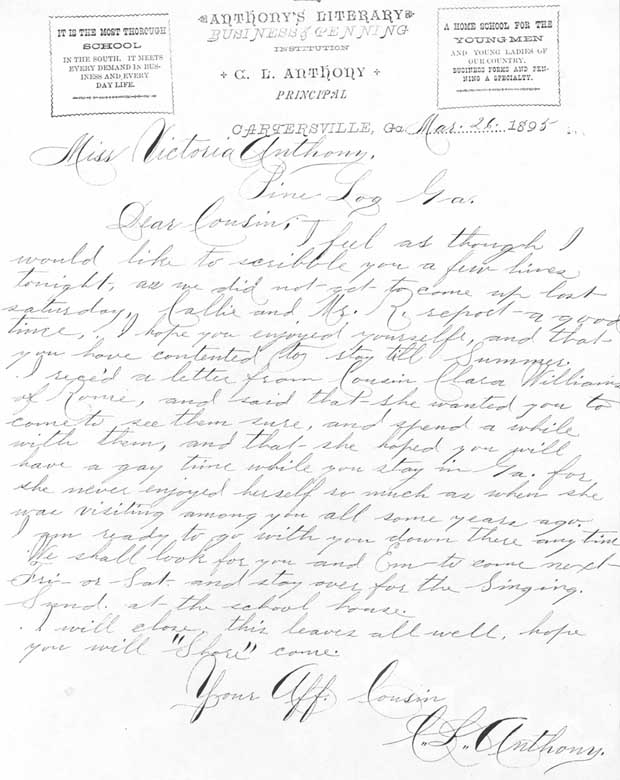 IT IS THE MOST THOROUGH
SCHOOL
IN THE SOUTH. IT MEETS
EVERY DEMAND IN BUS-
INESS AND EVERY
DAY LIFE.
ANTHONY'S LITERARY
BUSINESS & PENNING
INSTITUTION
C. L. ANTHONY
PRINCIPAL
A HOME SCHOOL FOR THE
YOUNG MEN
AND YOUNG LADIES OF
OUR COUNTRY.
BUSINESS FORMS AND PEN-
NING A SPECIALTY.
CARTERSVILLE, Ga. Mar. 26. 1895
Miss Victoria Anthony.
Pine Log Ga.
Dear Cousin; I feel as though I
would like to scribble you a few lines
tonight, as we did not get to come up last
saturday, Callie and Mr. R. report a good
time, I hope you enjoyed yourself, and that
you have contented to stay till Summer.
I rece'd a letter from Cousin Clara Williams
of Rome, and said that she wanted you to
come to see them sure, and spend a while
with them, and that she hoped you will
have a gay time while you stay in Ga. for
she never enjoyed herself so much as when she
was visiting among you all some years ago.
I am ready to go with you down there any time
We shall look for you and Em to come next
Fri- or Sat- and stay over for the Singing.
Sund. at the school house.
I will close, this leaves all well, hope
you will "Shore" come.
Your Aff. Cousin
C. L. Anthony.